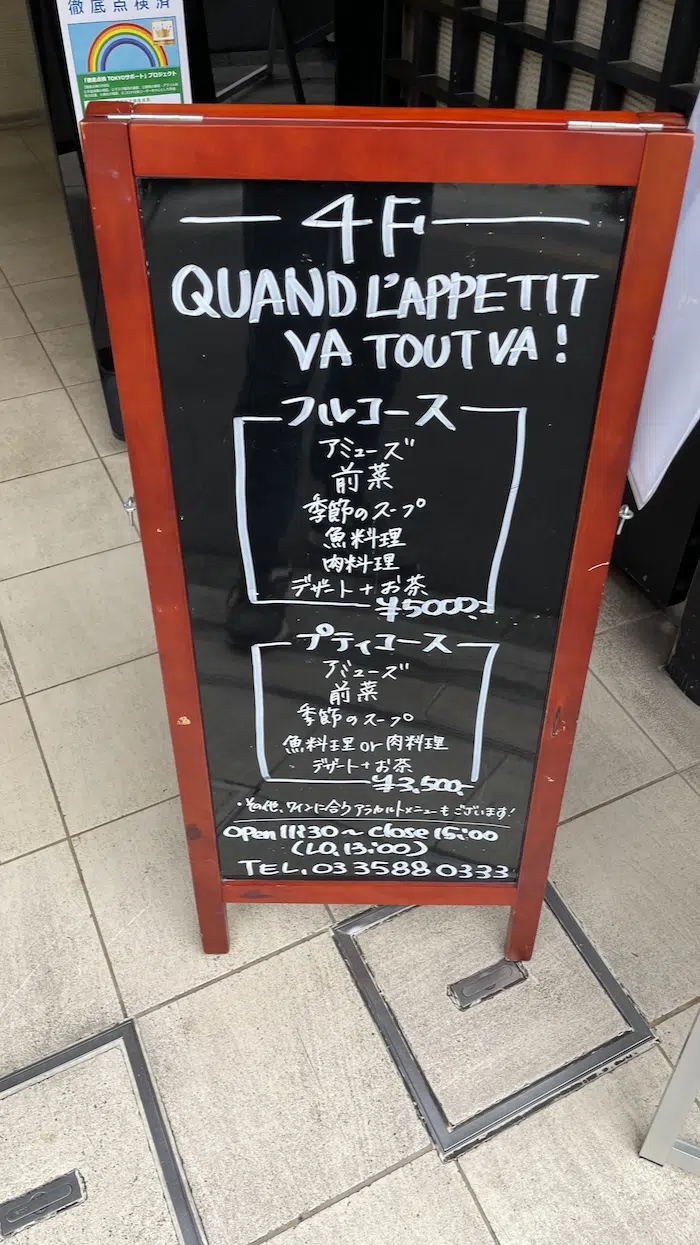 徹底点検済
「徹底点検 TOKYOサポート」プロジェクト
4F
QUAND L'APPETIT
VA TOUT VA!
フルコース
アミューズ
前菜
季節のスープ
魚料理
肉料理
デザート+お茶
¥5000-
プティコース
アミューズ
前菜
季節のスープ
魚料理 or 肉料理
デザート+お茶
¥3,500-
・その他、ワインに合うアラカルトメニューもございます!
Open 11:30~close 15:00
(LO.13:00)
TEL.03 3588 0333